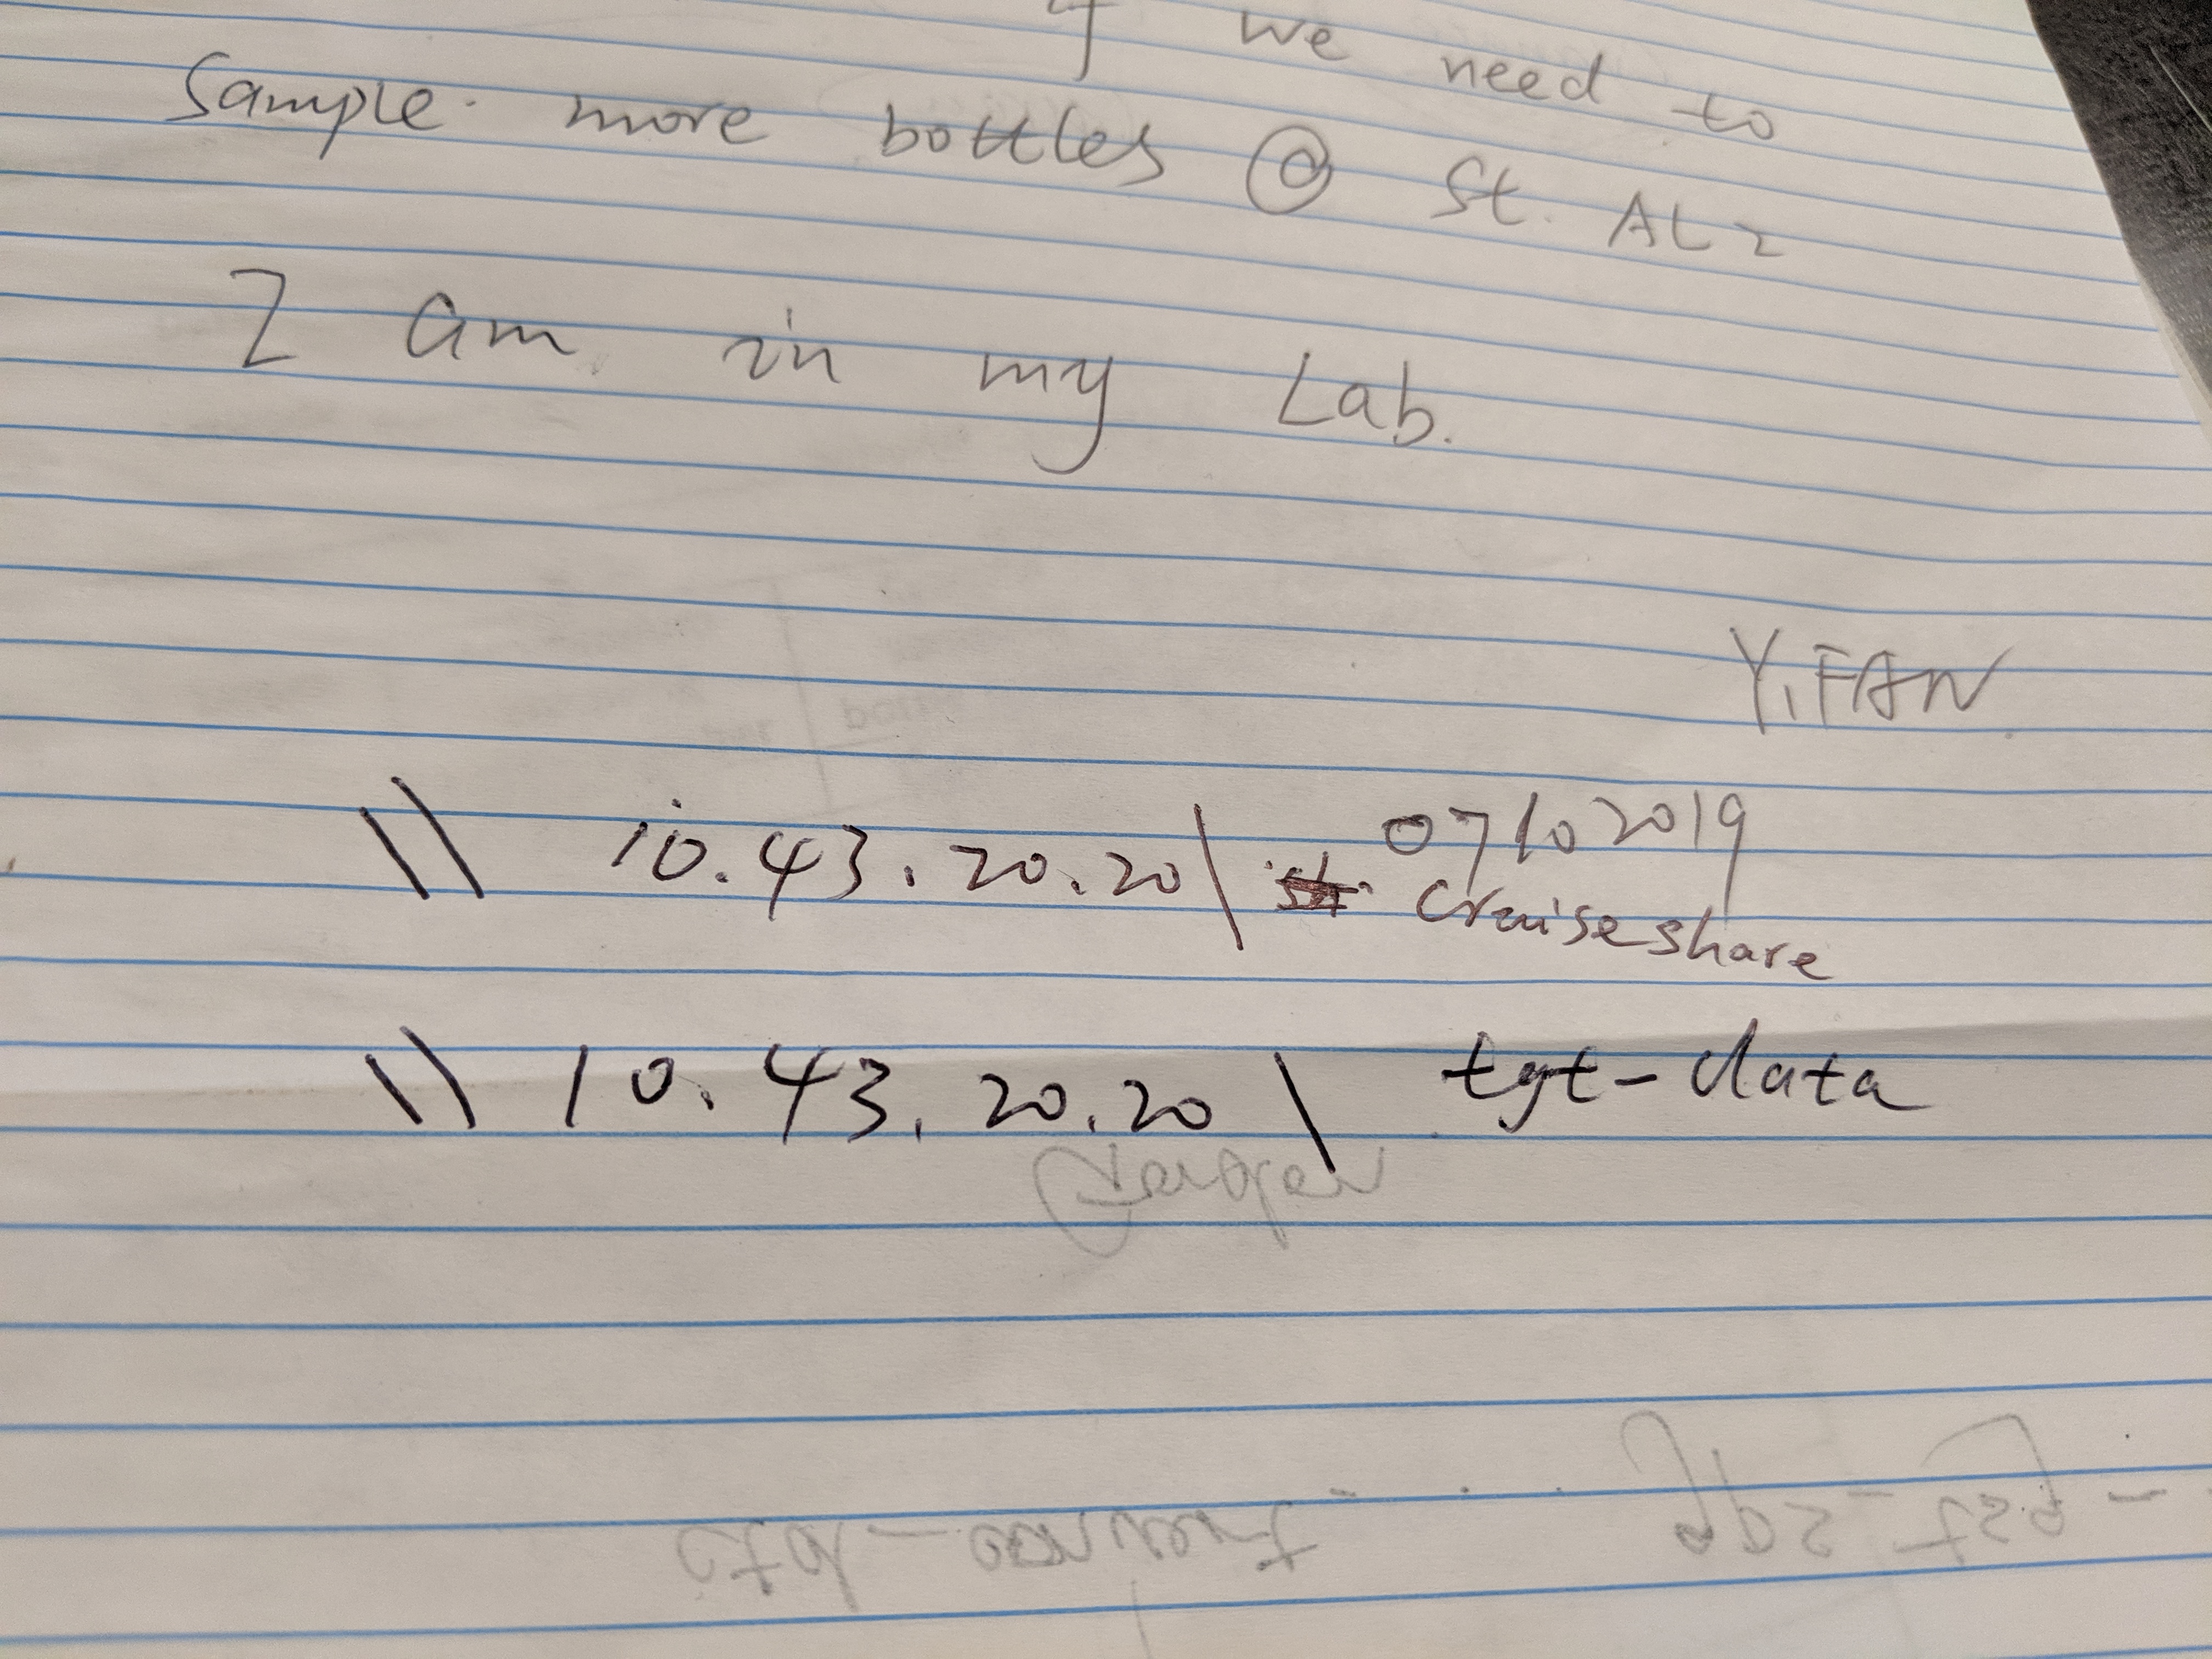 if we need to
Sample more bottles @ St. AL2
I am in my Lab.
YiFAN
07102019
\\ 10.43.20.20\ Cruiseshare
\\ 10.43.20.20 \ tgt-data